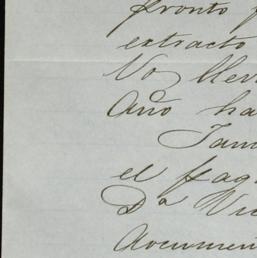 pronto p
extracto
No llev
Año ha
Tam
el pag
Dª Vic
documen